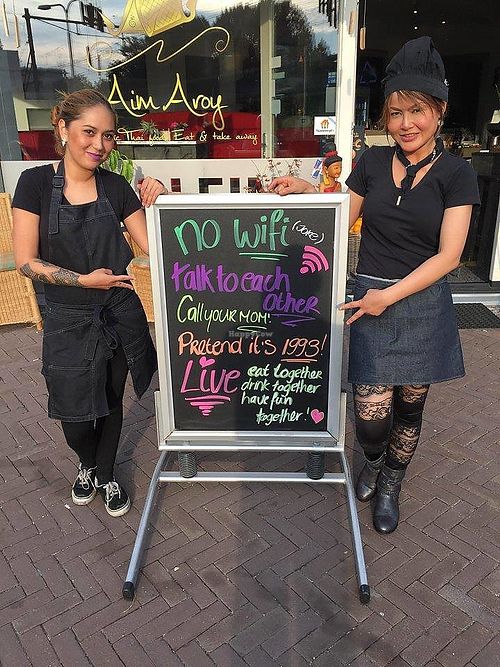 Aim Aroy
Thai food Eat & take away
NO WiFi (JOKE)
talk to each
other
Call your MOM!
Pretend it's 1993!
Live eat together
drink together
have fun
together!
HappyCow